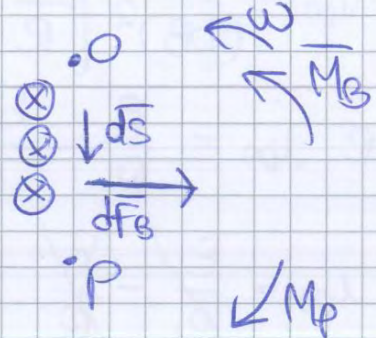 O
ω
M_B
ds
dF_B
P
M_P